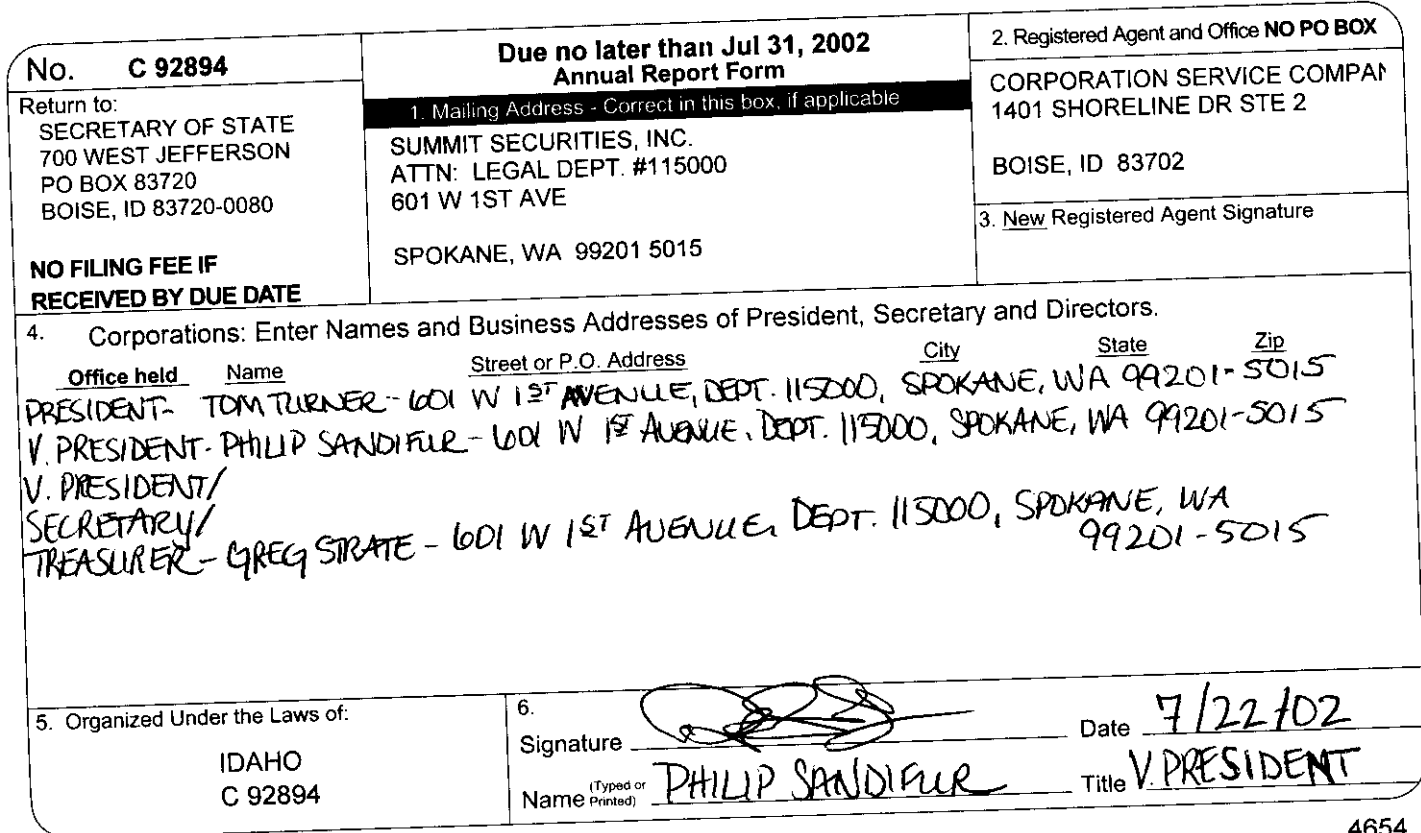 No. C 92894
Return to:
SECRETARY OF STATE
700 WEST JEFFERSON
PO BOX 83720
BOISE, ID 83720-0080
NO FILING FEE IF
RECEIVED BY DUE DATE
Due no later than Jul 31, 2002
Annual Report Form
1. Mailing Address - Correct in this box, if applicable
SUMMIT SECURITIES, INC.
ATTN: LEGAL DEPT. #115000
601 W 1ST AVE
SPOKANE, WA 99201 5015
2. Registered Agent and Office NO PO BOX
CORPORATION SERVICE COMPAN
1401 SHORELINE DR STE 2
BOISE, ID 83702
3. New Registered Agent Signature
4. Corporations: Enter Names and Business Addresses of President, Secretary and Directors.
Office held Name Street or P.O. Address City State Zip
PRESIDENT- TOM TURNER - 601 W 1ST AVENUE, DEPT. 115000, SPOKANE, WA 99201-5015
V. PRESIDENT- PHILIP SANDIFUR - 601 W 1ST AVENUE, DEPT. 115000, SPOKANE, WA 99201-5015
V. PRESIDENT/
SECRETARY/
TREASURER - GREG STRATE - 601 W 1ST AVENUE, DEPT. 115000, SPOKANE, WA
99201-5015
5. Organized Under the Laws of:
IDAHO
C 92894
6.
Signature
Date 7/22/02
Name (Typed or Printed) PHILIP SANDIFUR
Title V. PRESIDENT
4654